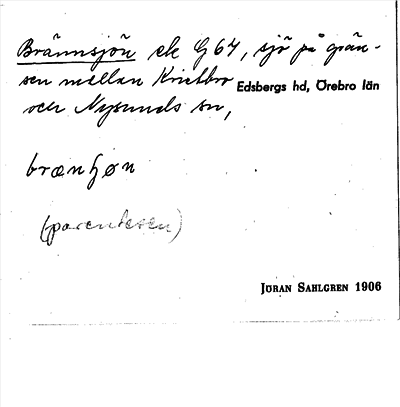 Brännsjön ek G 64, sjö på grän-
sen mellan Knistbro Edsbergs hd, Örebro län
och Nysunds sn,
brænʃøn
(parentesen)
JÖRAN SAHLGREN 1906